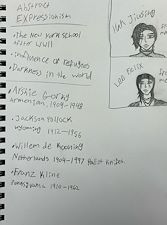 Abstract
Expressionism
• The New York School
of the Wall
• influence of refugees
• Darkness in the world
• Arshile Gorky
Armenian, 1904-1948
• Jackson Pollock
Wyoming 1912-1956
• Willem de Kooning
Netherlands 1904-1997
• Franz Kline
Pennsylvania 1910-1962
Leo Felix